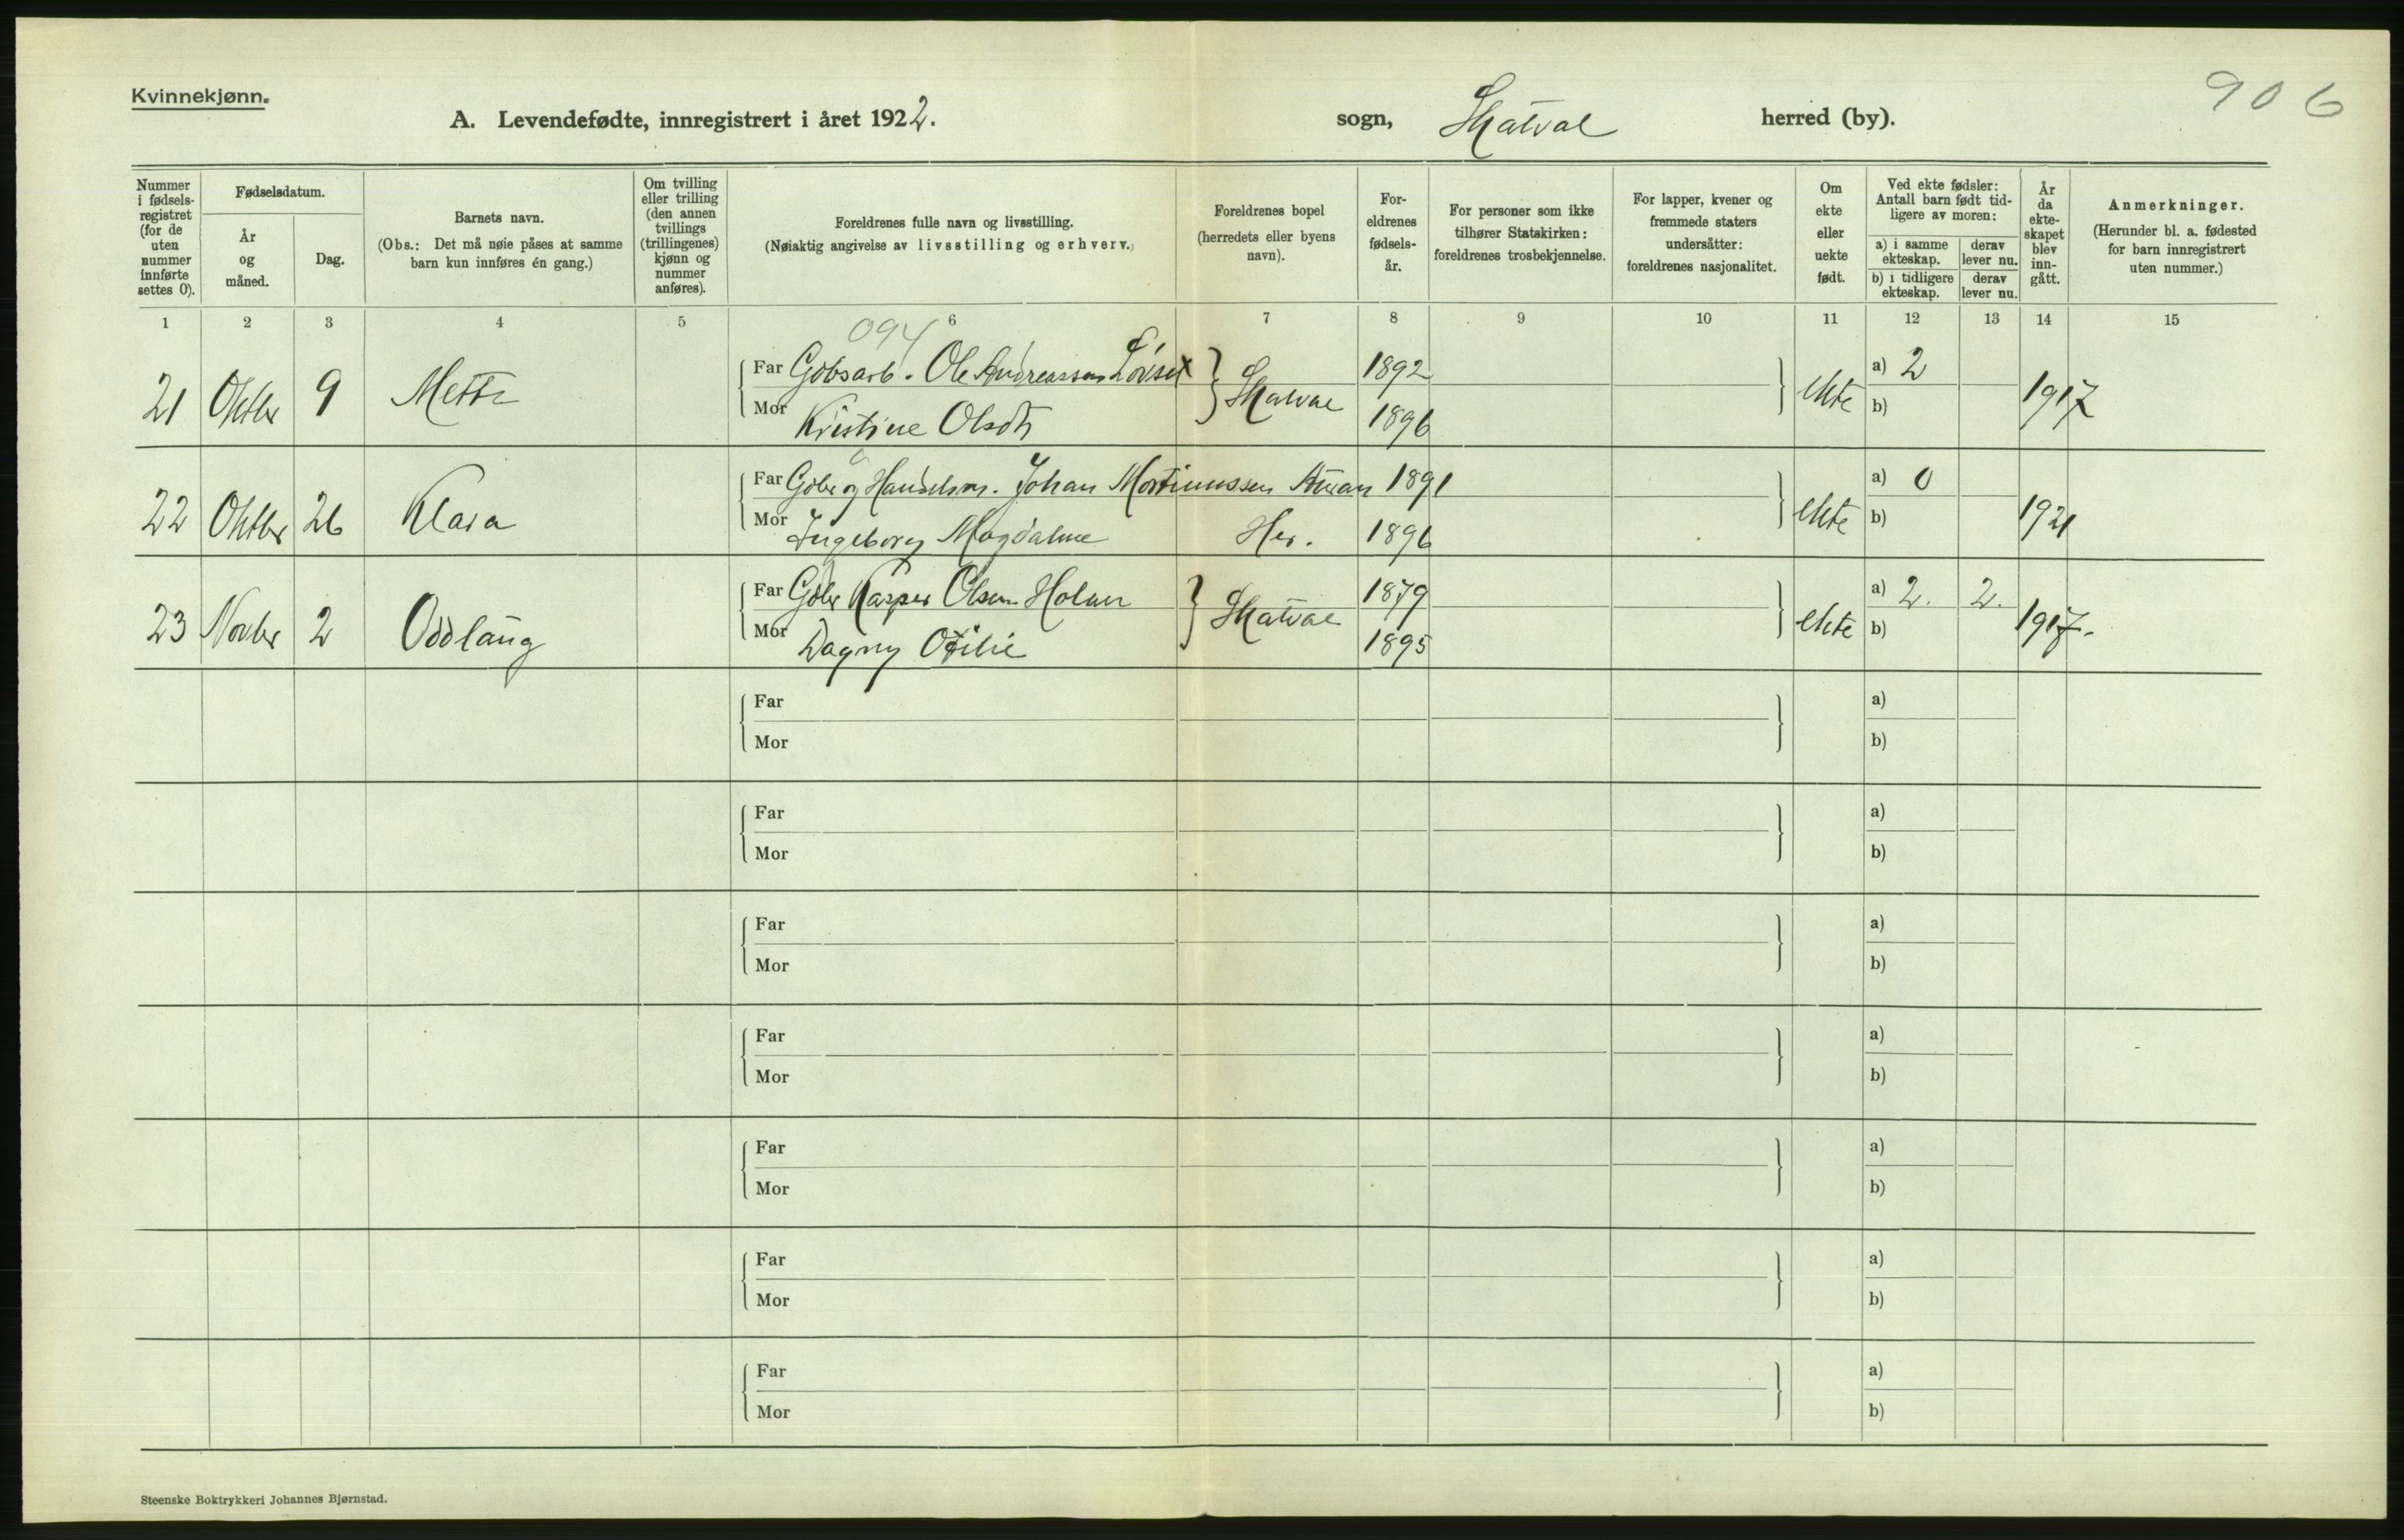 Kvinnekjønn.
906
A. Levendefødte, innregistrert i året 1922. sogn, Skatval herred (by).
Nummer i fødsels-registret (for de uten nummer innførte settes 0).
Fødselsdatum.
År og måned.
Dag.
Barnets navn.
(Obs.: Det må nøie påses at samme barn kun innføres én gang.)
Om tvilling eller trilling (den annen tvillings (trillingenes) kjønn og nummer anføres).
Foreldrenes fulle navn og livsstilling.
(Nøiaktig angivelse av livsstilling og erhverv.)
Foreldrenes bopel (herredets eller byens navn).
For-eldrenes fødsels-år.
For personer som ikke tilhører Statskirken: foreldrenes trosbekjennelse.
For lapper, kvener og fremmede staters undersåtter: foreldrenes nasjonalitet.
Om ekte eller uekte født.
Ved ekte fødsler: Antall barn født tid-ligere av moren:
a) i samme ekteskap. derav lever nu.
b) i tidligere ekteskap. derav lever nu.
År da ekte-skapet blev inn-gått.
Anmerkninger.
(Herunder bl. a. fødested for barn innregistrert uten nummer.)
1 2 3 4 5 6 7 8 9 10 11 12 13 14 15
094
21 Oktbr 9 Mette Far Gbsarb. Ole Andreassen Skatval 1892 ekte a) 2 1917
Mor Kristine Olsdtr 1896 b)
22 Oktbr 26 Klara Far Gbr og Handelsm. Johan Mortinussen 1891 ekte a) 0 1921
Mor Ingeborg Magdalene Her. 1896 b)
23 Novbr 2 Oddlaug Far Gbr Kasper Olsen Holan Skatval 1879 ekte a) 2. 2. 1917.
Mor Dagny Otilie 1895 b)
Far a)
Mor b)
Far a)
Mor b)
Far a)
Mor b)
Far a)
Mor b)
Far a)
Mor b)
Far a)
Mor b)
Far a)
Mor b)
Steenske Boktrykkeri Johannes Bjørnstad.